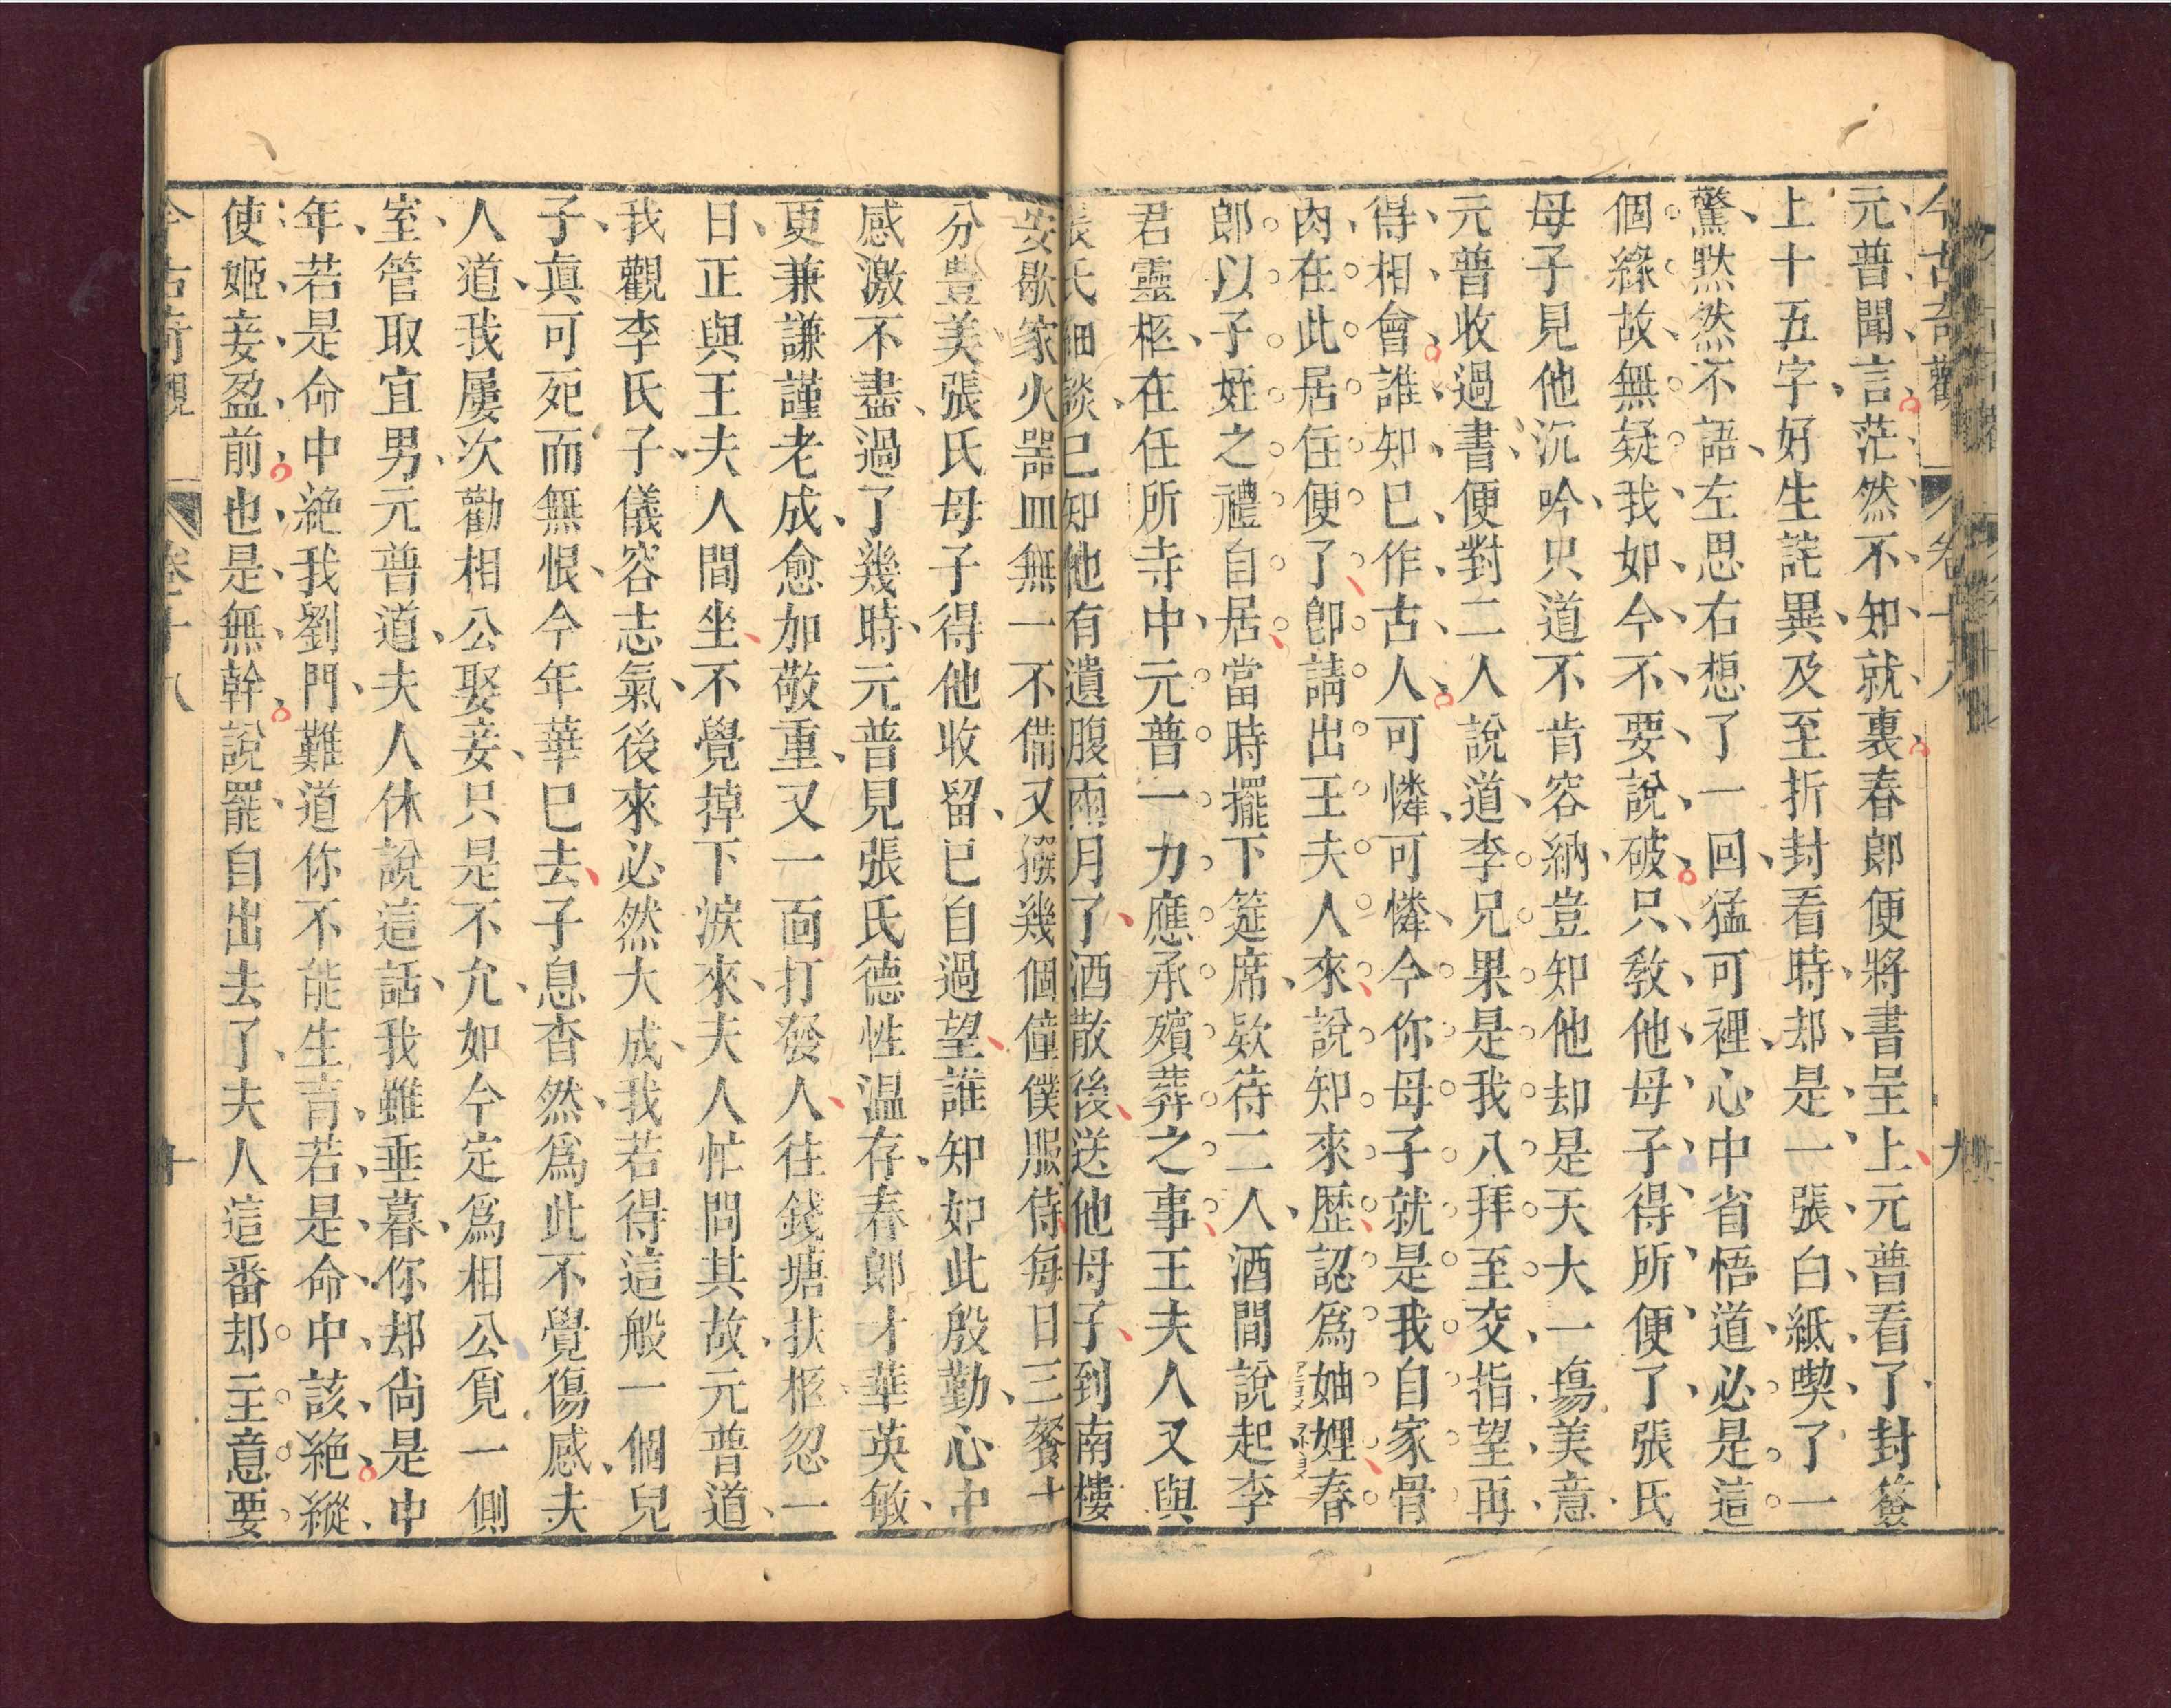 今古奇觀 卷十八 九
元普聞言茫然不知就裏春郎便將書呈上元普看了封簽
上十五字好生詫異及至折封看時却是一張白紙喫了一
驚默然不語左思右想了一回猛可裡心中省悟道必是這
個緣故無疑我如今不要說破只敎他母子得所便了張氏
母子見他沉吟只道不肯容納豈知他却是天大一場美意
元普收過書便對二人說道李兄果是我八拜至交指望再
得相會誰知已作古人可憐可憐今你母子就是我自家骨
肉在此居住便了卽請出王夫人來說知來歷認爲妯娌春
郎以子姪之禮自居當時擺下筵席欵待二人酒間說起李
君靈柩在任所寺中元普一力應承殯葬之事王夫人又與
張氏細談已知他有遺腹兩月了酒散後送他母子到南樓
安歇家火器皿無一不備又撥幾個僮僕服侍每日三餐十
分豊美張氏母子得他收留已自過望誰知如此殷勤心中
感激不盡過了幾時元普見張氏德性温存春郎才華英敏
更兼謙謹老成愈加敬重又一面打發人往錢塘扶柩忽一
日正與王夫人間坐不覺掉下淚來夫人忙問其故元普道
我觀李氏子儀容志氣後來必然大成我若得這般一個兒
子眞可死而無恨今年華已去子息杳然爲此不覺傷感夫
人道我屢次勸相公娶妾只是不允如今定爲相公覓一側
室管取宜男元普道夫人休說這話我雖垂暮你却尙是中
年若是命中絶我劉門難道你不能生育若是命中該絶縱
使姬妾盈前也是無幹說罷自出去了夫人這番却主意要
今古奇觀 卷十八 十
アニヨメ ヲトヨメ